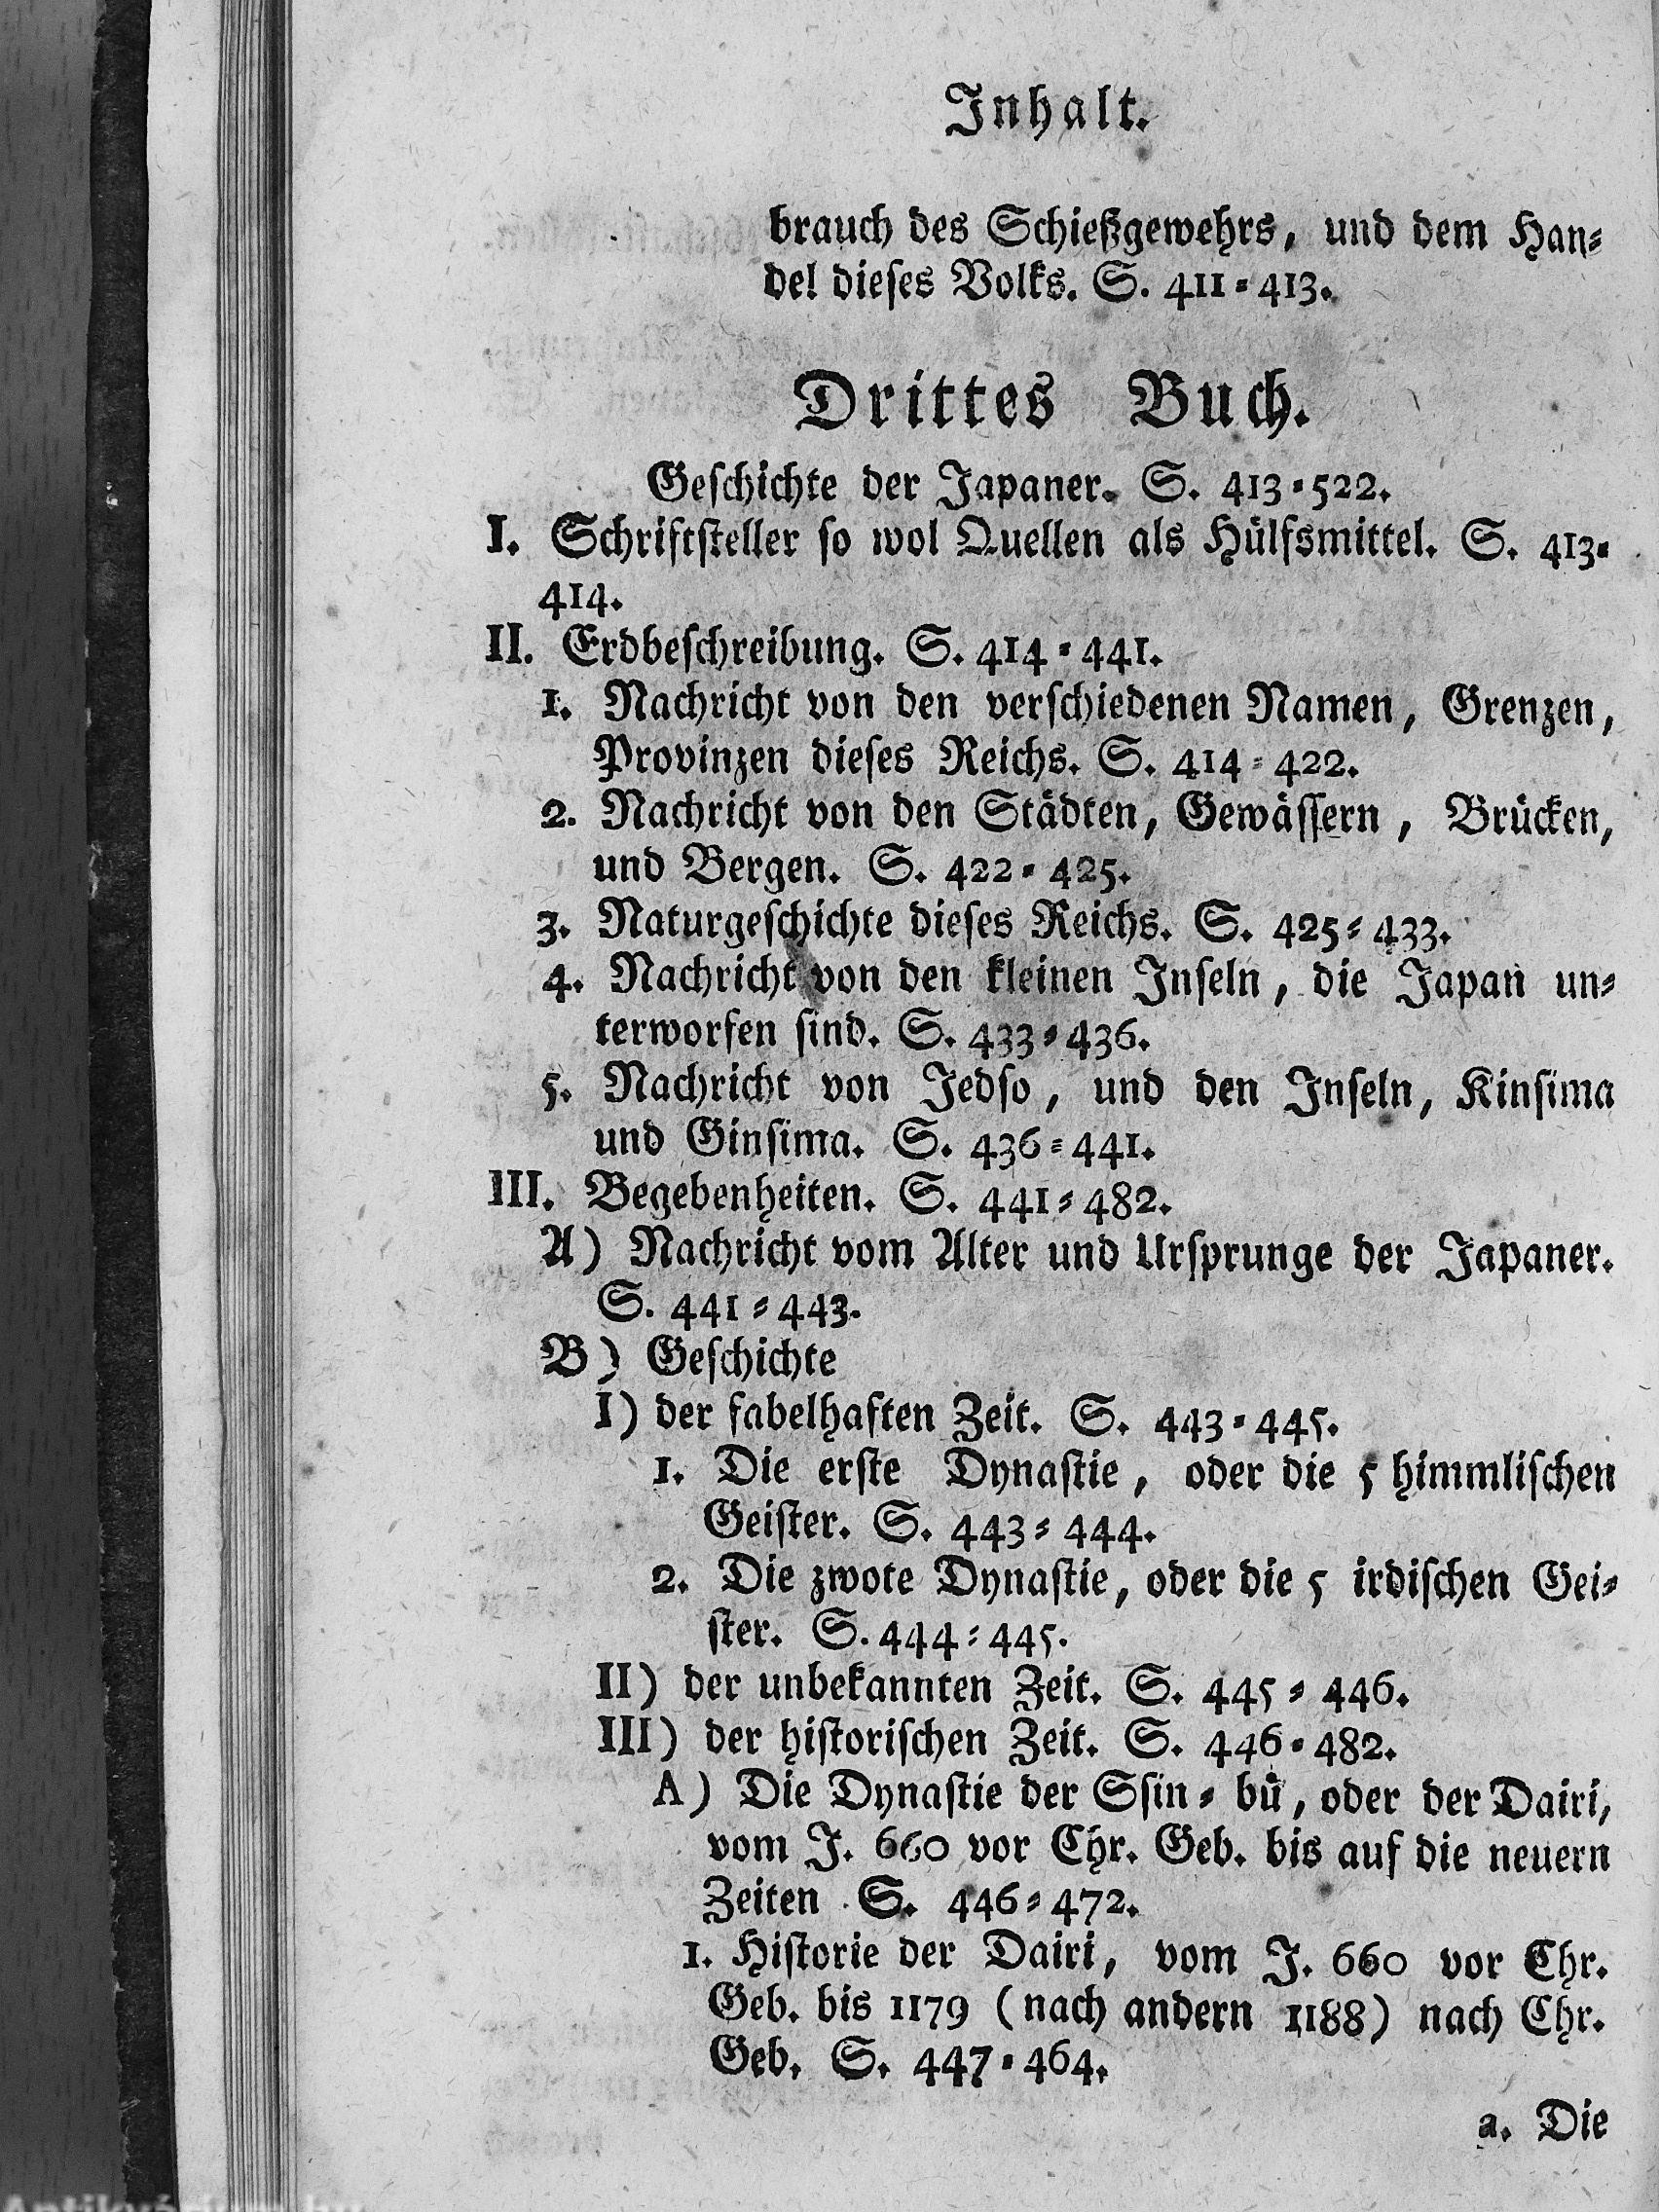 Inhalt.
brauch des Schießgewehrs, und dem Han⸗
del dieſes Volks. S. 411⸗413.
Drittes Buch.
Geſchichte der Japaner. S. 413⸗522.
I. Schriftſteller ſo wol Quellen als Hülfsmittel. S. 413⸗
414.
II. Erdbeſchreibung. S. 414⸗441.
1. Nachricht von den verſchiedenen Namen, Grenzen,
Provinzen dieſes Reichs. S. 414⸗422.
2. Nachricht von den Städten, Gewäſſern, Brücken,
und Bergen. S. 422⸗425.
3. Naturgeſchichte dieſes Reichs. S. 425⸗433.
4. Nachricht von den kleinen Inſeln, die Japan un⸗
terworfen ſind. S. 433⸗436.
5. Nachricht von Jedſo, und den Inſeln, Kinſima
und Ginſima. S. 436⸗441.
III. Begebenheiten. S. 441⸗482.
A) Nachricht vom Alter und Urſprunge der Japaner.
S. 441⸗443.
B) Geſchichte
I) der fabelhaften Zeit. S. 443⸗445.
1. Die erſte Dynaſtie, oder die 5 himmliſchen
Geiſter. S. 443⸗444.
2. Die zwote Dynaſtie, oder die 5 irdiſchen Gei⸗
ſter. S. 444⸗445.
II) der unbekannten Zeit. S. 445⸗446.
III) der hiſtoriſchen Zeit. S. 446⸗482.
A) Die Dynaſtie der Sſin⸗bü, oder der Dairi,
vom J. 660 vor Chr. Geb. bis auf die neuern
Zeiten S. 446⸗472.
1. Hiſtorie der Dairi, vom J. 660 vor Chr.
Geb. bis 1179 (nach andern 1188) nach Chr.
Geb. S. 447⸗464.
a. Die